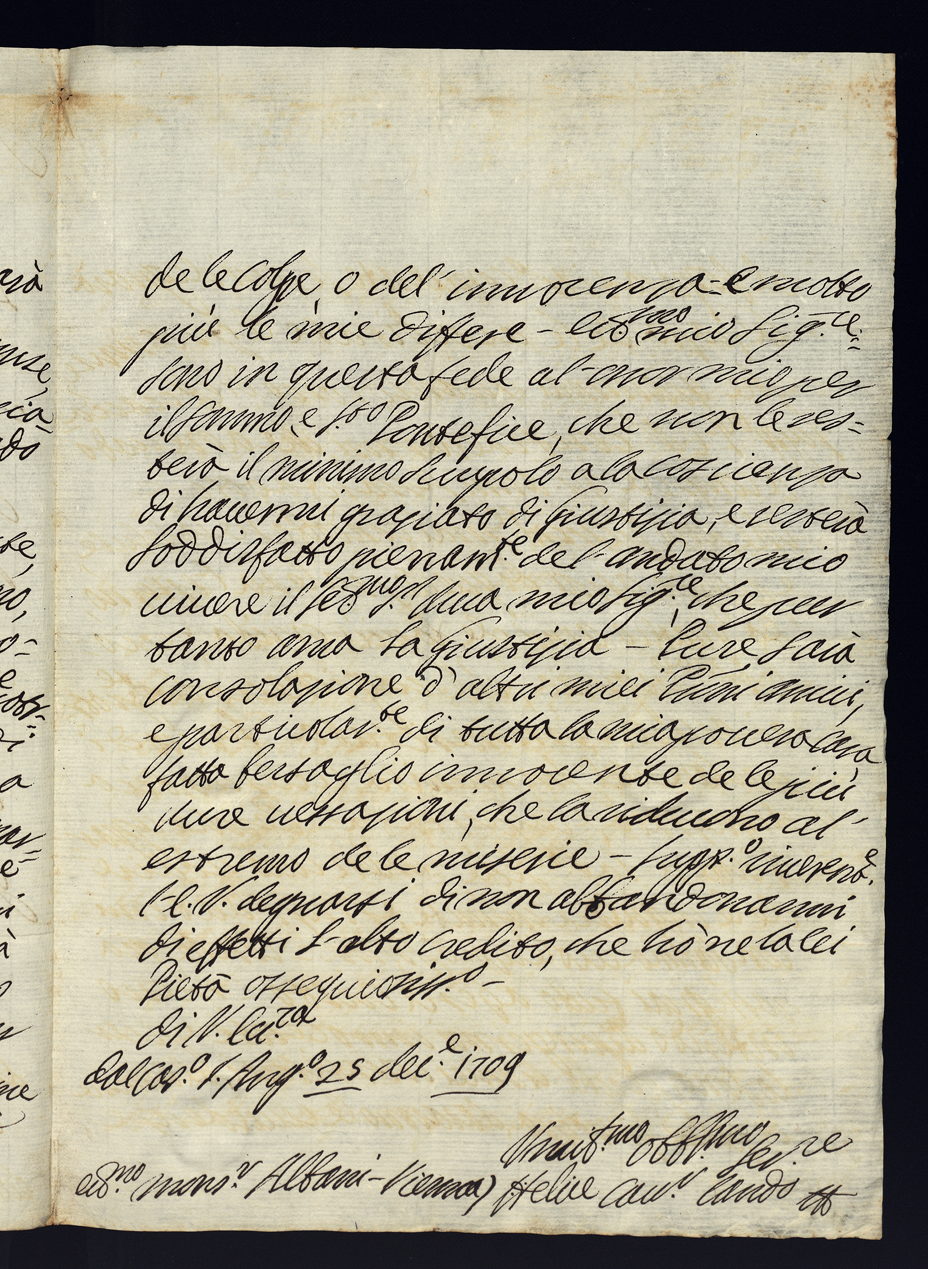 de le Colpe, o del' innocenza = e molto
più le mie difese - Ecc.mo mio Sig.re =
sono in questa fede al' onor mio per
il sommo, e S.to Pontefice, che non le res=
terà il minimo scrupolo a la coscienza
di havermi graziato di Giustizia, e resterà
soddisfatto pienam.te del' andato mio
vivere il Ser.mo S.r Duca mio Sig.re, che pur
tanto ama la Giustizia - Pure sarà
consolazione d' altri miei Pñi amici,
e particolar.te di tutta la mia povera Casa
fatta bersaglio innocente de le più
dure vessazioni, che la riducono al'
estremo de le miserie - supp.o
l' E. V. degnarsi di non abbandonarmi
di effetti l' alto Credito, che hò ne la lei
Pietà ossequiosiss.o -
di V. Ecc.za
dal Cas.o S. Ang.o 25 dec.e 1709
Umil.mo obb.mo Ser.re
Ecc.mo mons.r Albani - Vienna) Felice Cav.r Landi